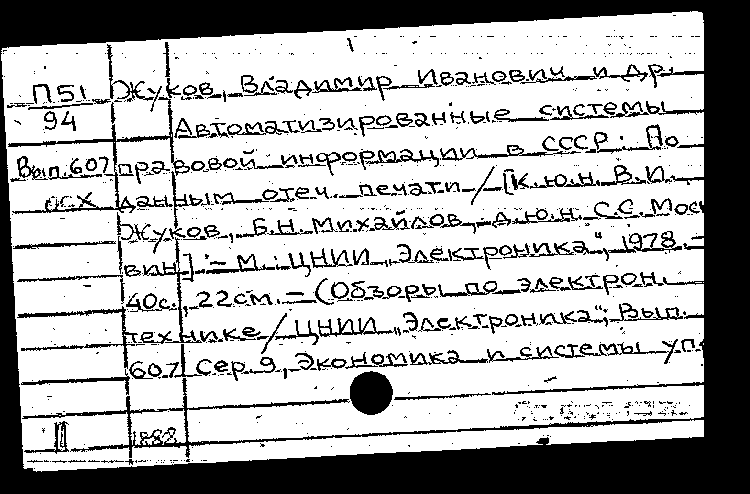 П51 Жуков, Владимир Иванович и др.
94 Автоматизированные системы
Вып.607 правовой информации в СССР: По
осх данным отеч. печати / [к.ю.н. В.И.
Жуков, Б.Н. Михайлов, д.ю.н. С.С. Мос
вин]. – М.: ЦНИИ „Электроника“, 1978. –
40с., 22см. – (Обзоры по электрон.
технике / ЦНИИ „Электроника“; Вып.
607 Сер. 9, Экономика и системы уп